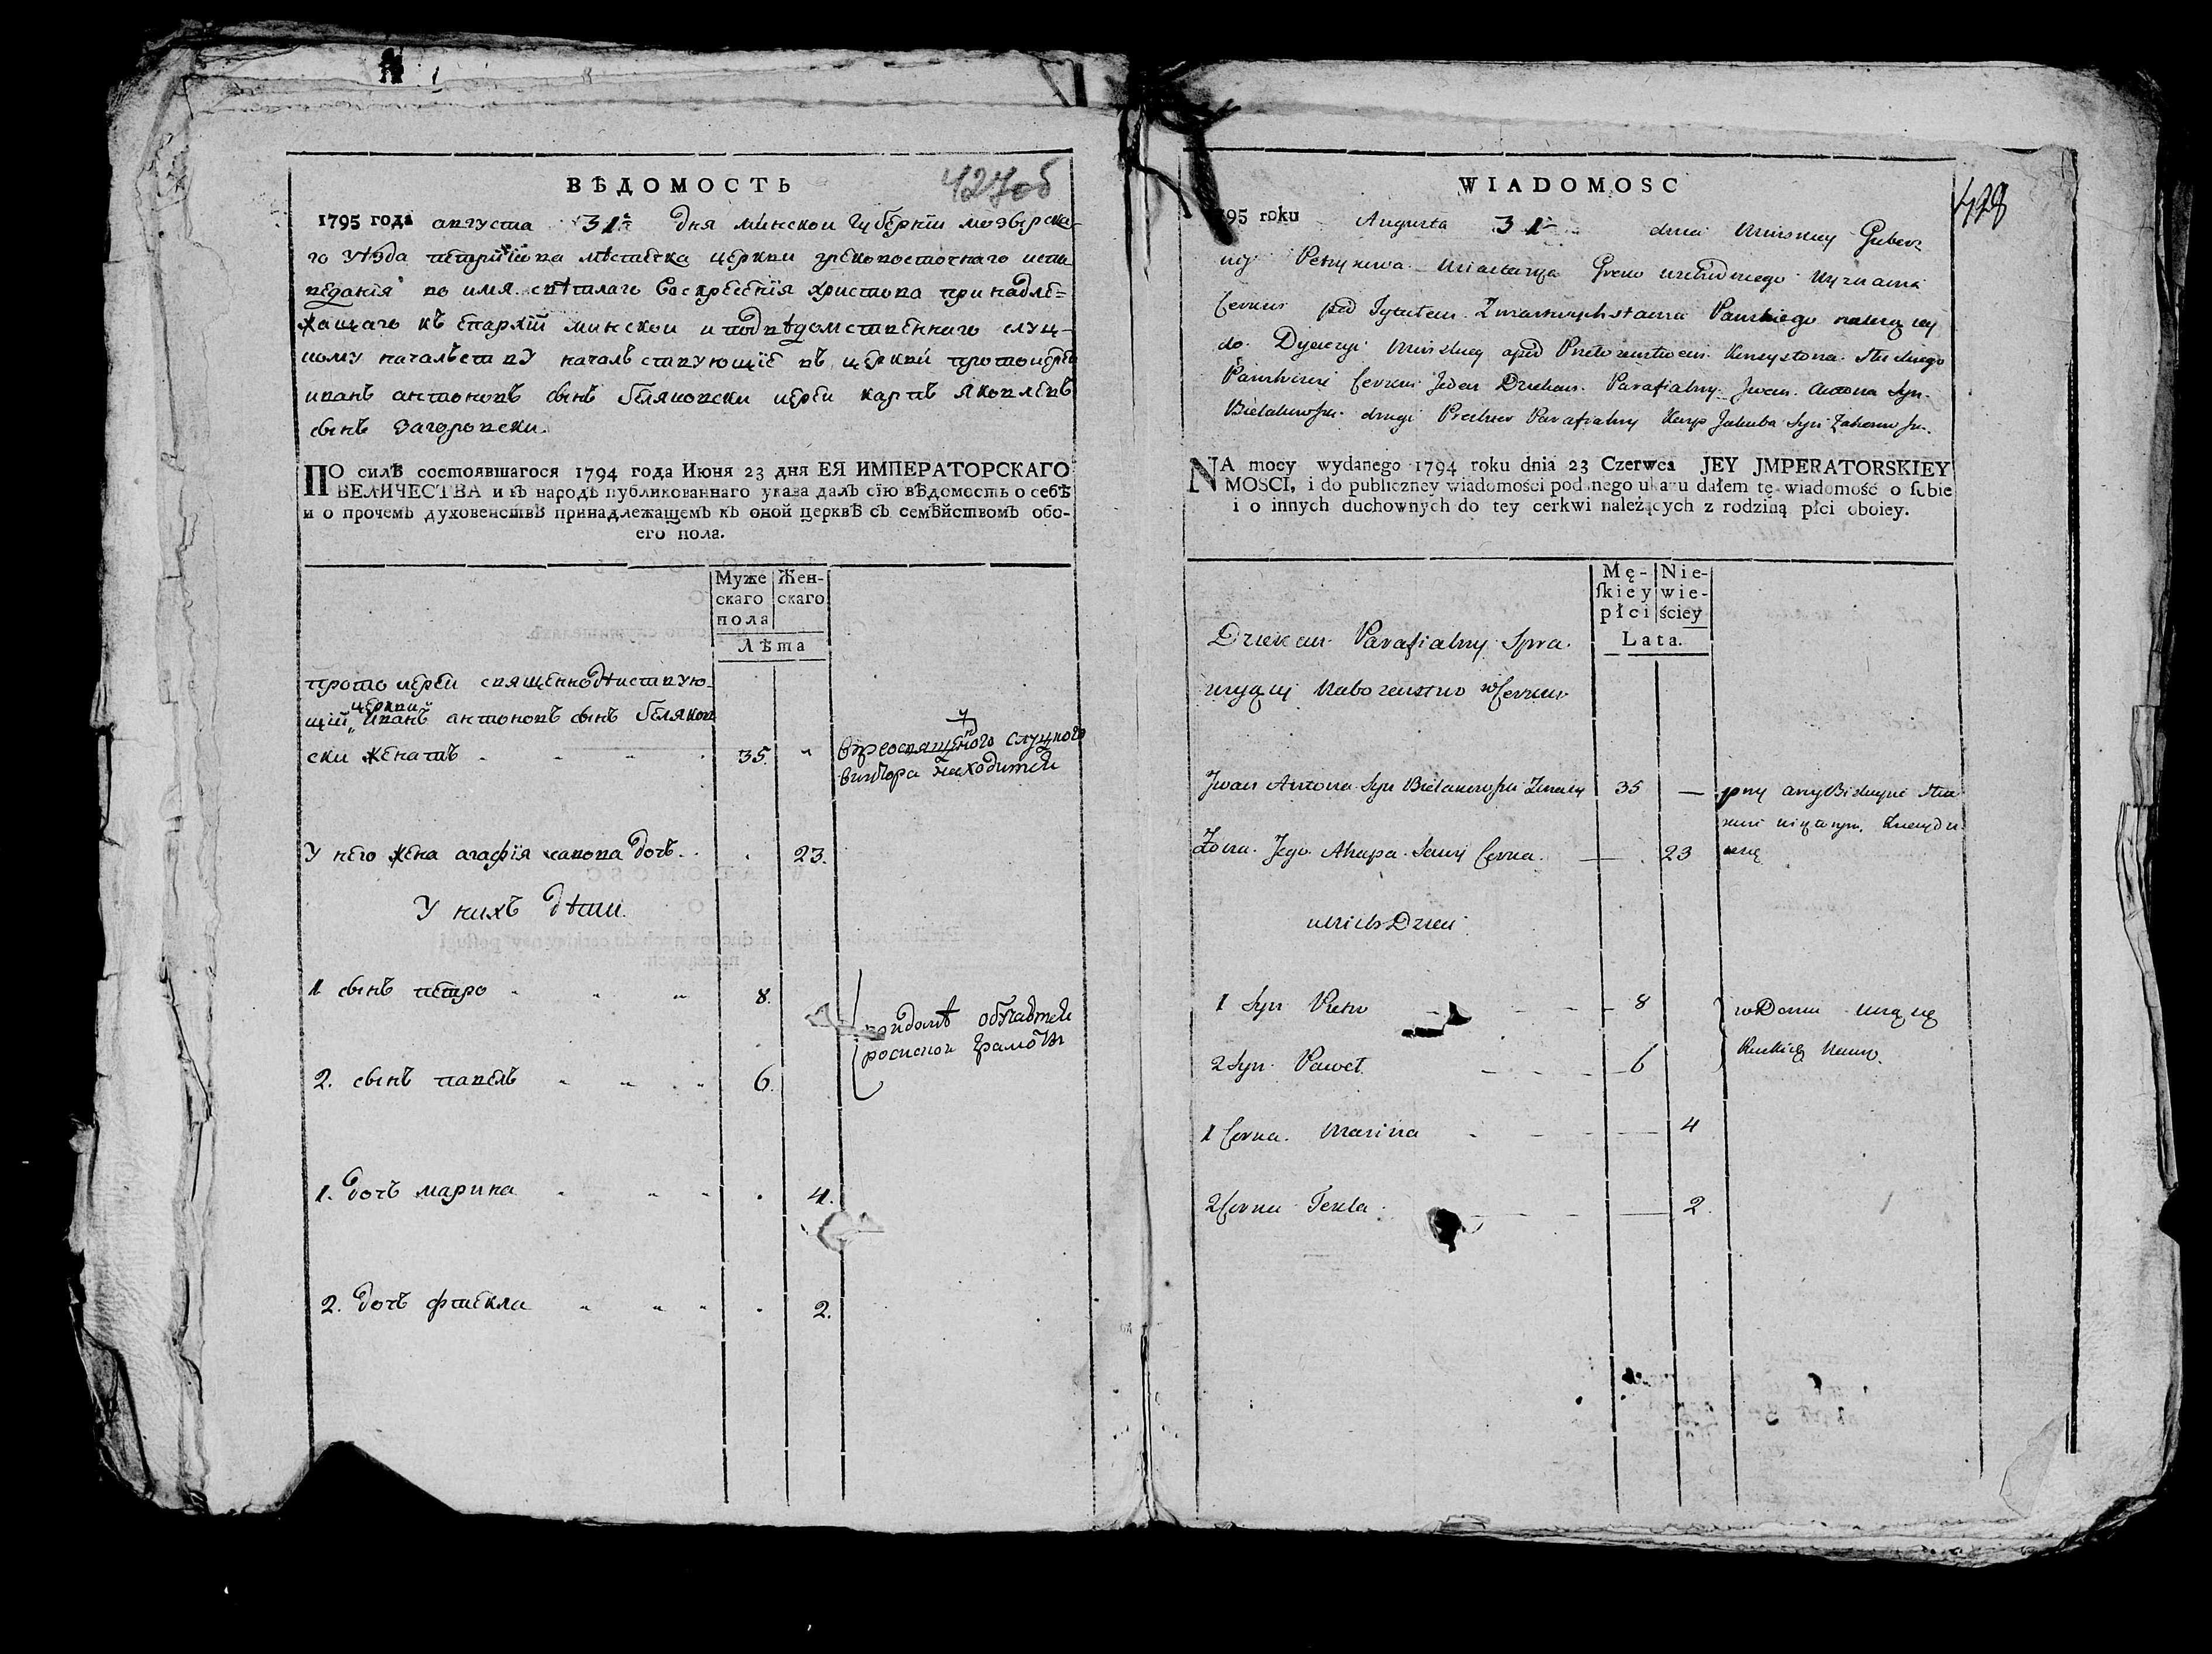 ВѢДОМОСТЬ
427об
1795 года августа 31 дня минской губерніи мозырска-
го уѣзда петрикова мѣстечка церкви грековосточнаго испо
веданія во имя свѣтлаго Воскресенія христова принадле=
жащаго къ епархіи минской и подвѣдомственнаго слуц-
кому началству началствующіе въ церкви протоиерей
иванъ антоновъ сынъ беляковски иерей карпъ яковлевъ
сынъ загоровски.
ПО силѣ состоявшагося 1794 года Июня 23 дня ЕЯ ИМПЕРАТОРСКАГО
ВЕЛИЧЕСТВА и въ народъ публикованнаго указа далъ сїю вѣдомость о себѣ
и о прочемъ духовенствѣ принадлежащемъ къ оной церквѣ съ семѣйствомъ обо-
его пола.
Муже Жен-
скаго скаго
пола
Лѣта
протоиерей священнодѣиствую-
церкви
щій иванъ антоновъ сынъ беляков
ски женатъ 35.
находител
У него жена агафія савова дочь 23.
У нихъ дѣти.
1 сынъ петро 8.
2. сынъ павелъ 6.
1. дочь марина 4.
2. дочь фтекла 2.
WIADOMOSC
428
95 roku Augusta 31 dnia Minskiey Guber
nij Petrykowa Miasteczka Greko wschodniego wyznania
Cerkwi pod Tytułem Zmartwychstania Pańskiego należącey
do Dyecezyi Minskiey
Cerkwi Jeden Dziekan Parafialny Jwan Antona Syn
Bielakowski drugi Parafialny Karp Jakuba Syn
NA mocy wydanego 1794 roku dnia 23 Czerwca JEY JMPERATORSKIEY
MOSCI, i do publiczney wiadomości podanego ukazu dałem tę wiadomość o sobie
i o innych duchownych do tey cerkwi należących z rodziną płci oboiey.
Mę- Nie-
skiey wie-
płci ściey
Lata.
Dziekan Parafialny Spra
wuiący Nabozenstwo w Cerkwi
Jwan Antona Syn Bielakowski Zonaty 35 — przy
Zona Jego Ahapa Sawy Corka 23
u nich Dzieci
1 Syn Piotr 8 w Domu uczą się
2 Syn Paweł 6 Ruskiey
1 Corka Marina 4
2 Corka Tekla 2.